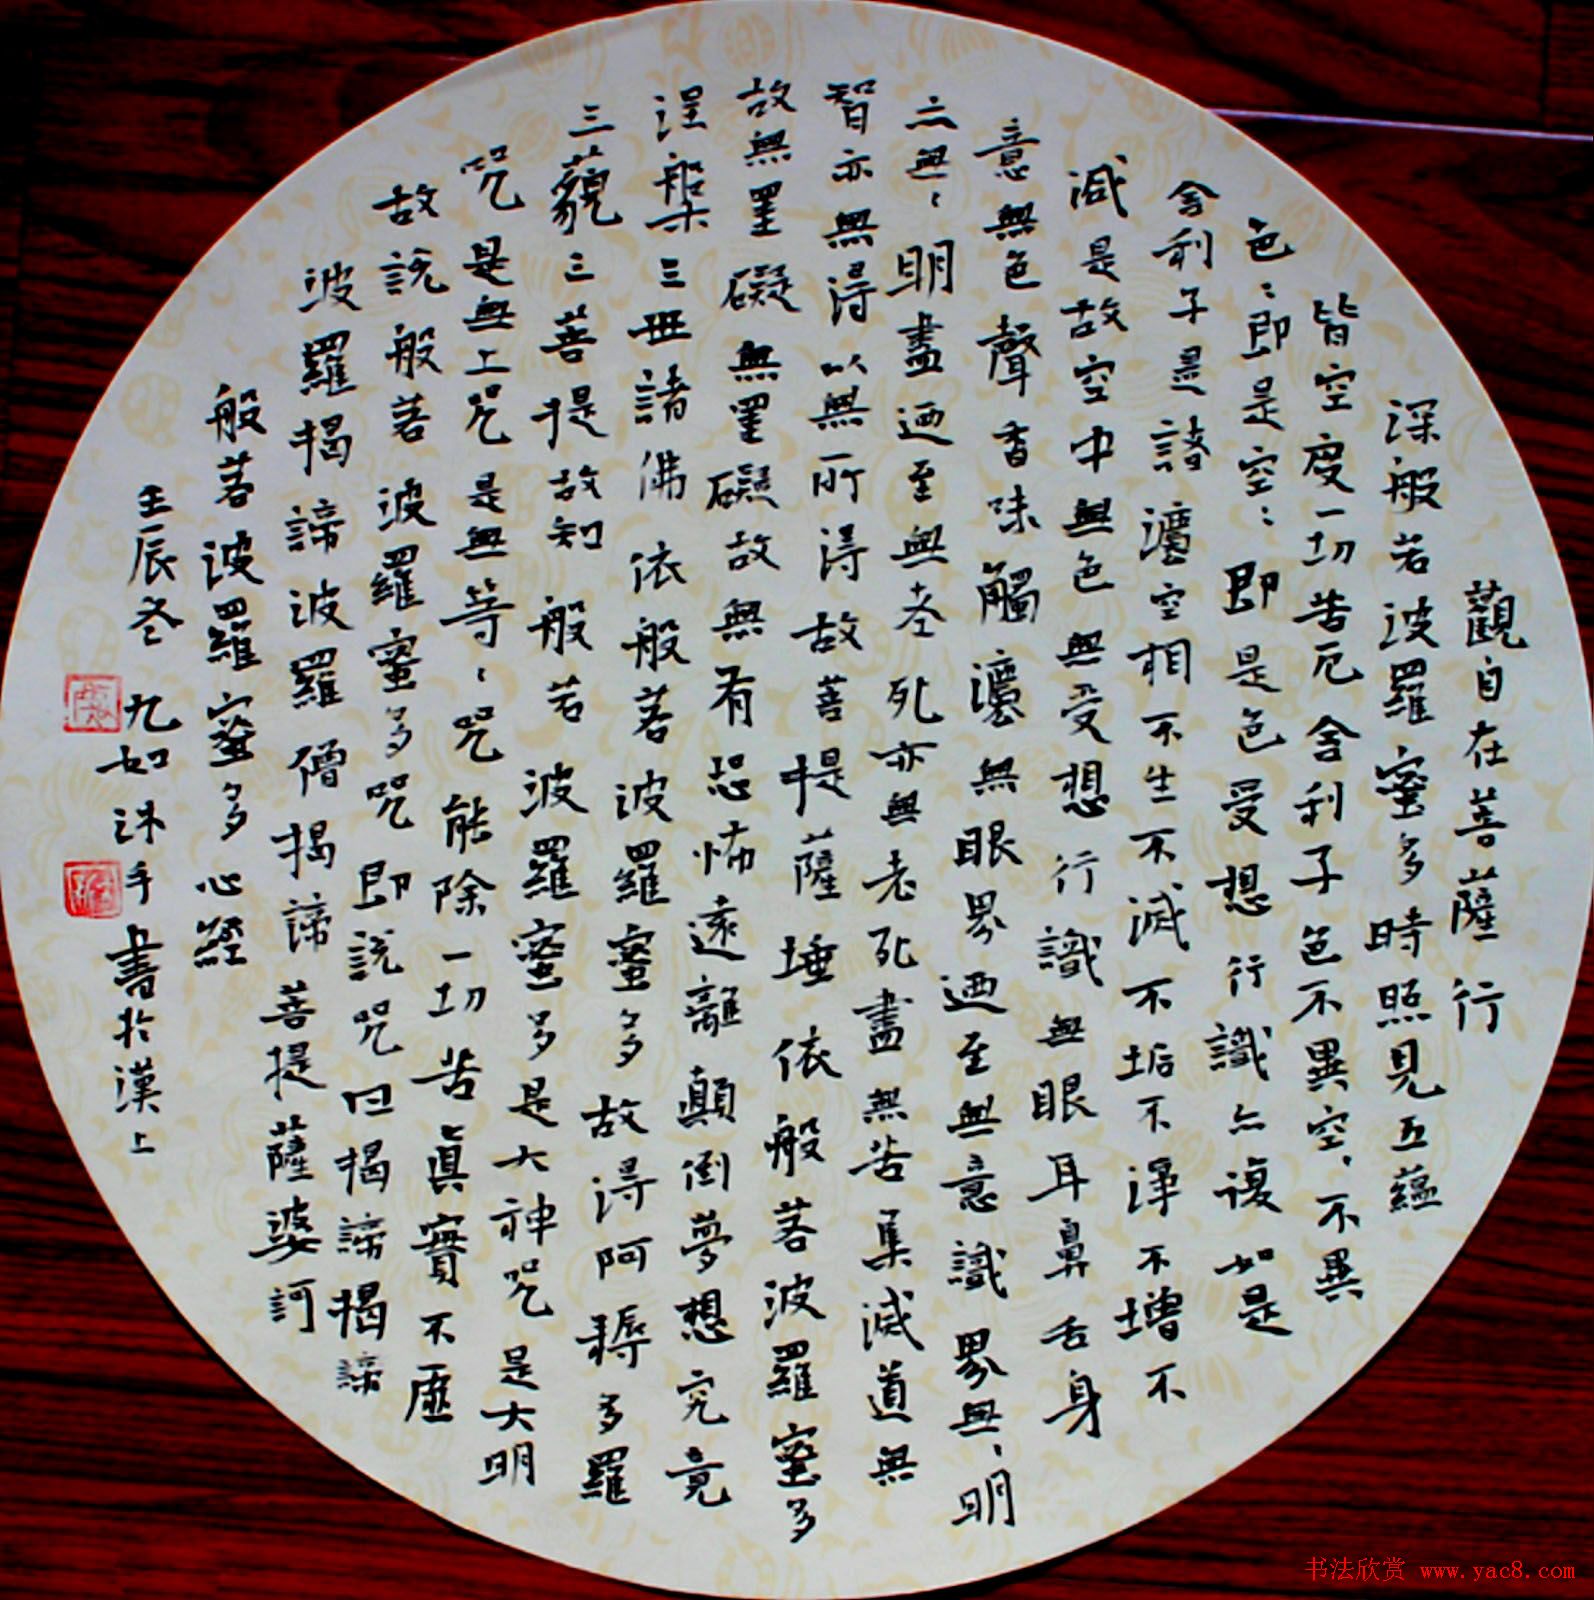 觀自在菩薩行
深般若波羅蜜多時照見五蘊
皆空度一切苦厄舍利子色不異空、不異
色：即是空：即是色受想行識亦復如是
舍利子是諸灋空相不生不滅不垢不淨不增不
減是故空中無色無受想行識無眼耳鼻舌身
意無色聲香味觸灋無眼界迺至無意識界無、明
亦無、明盡迺至無老死亦無老死盡無苦集滅道無
智亦無得以無所得故菩提薩埵依般若波羅蜜多
故無罣礙無罣礙故無有恐怖遠離顛倒夢想究竟
涅槃三世諸佛依般若波羅蜜多故得阿耨多羅
三藐三菩提故知般若波羅蜜多是大神咒是大明
咒是無上咒是無等、咒能除一切苦真實不虛
故說般若波羅蜜多咒即說咒曰揭諦揭諦
波羅揭諦波羅僧揭諦菩提薩婆訶
般若波羅蜜多心經
壬辰冬九如沐手書於漢上
书法欣赏 www.yac8.com